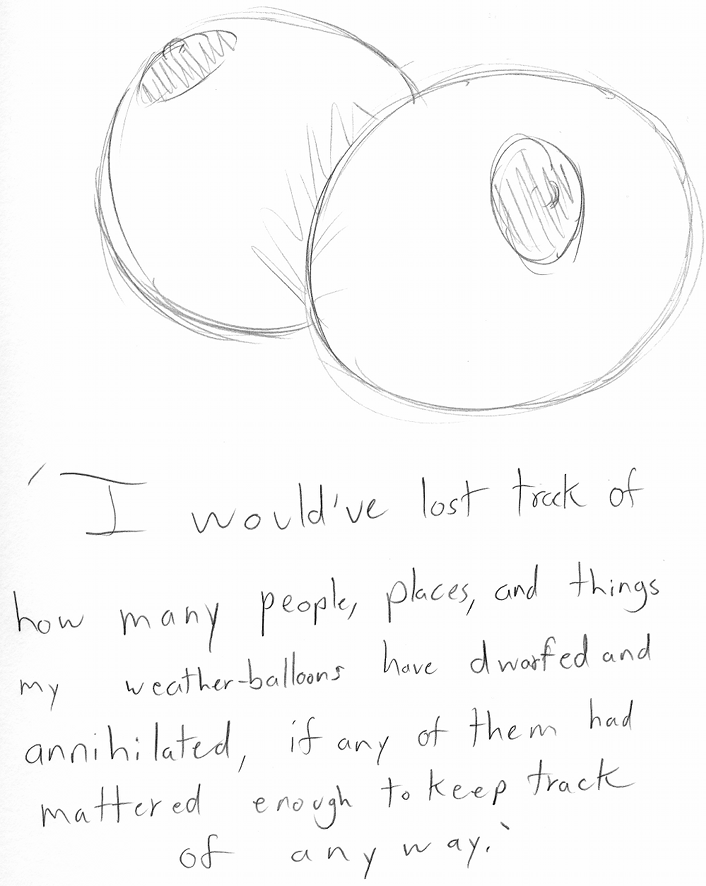 'I would've lost track of
how many people, places, and things
my weather-balloons have dwarfed and
annihilated, if any of them had
mattered enough to keep track
of anyway.'